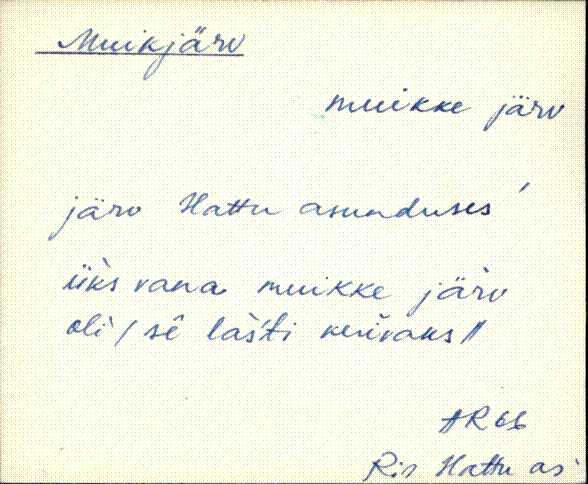 Muikjärv
muikke järv
järv Hattu asunduses
üks vana muikke järv
oli / sê laśti kuivaks //
AR 66
Ris Hattu as